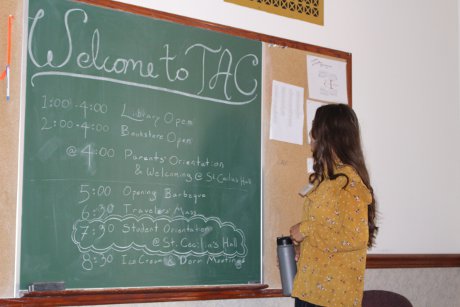 Welcome to TAC
1:00-4:00 Library Open
2:00-4:00 Bookstore Open
@ 4:00 Parents' Orientation
& Welcoming @ St. Cecilia's Hall
5:00 Opening Barbeque
6:30 Travelers' Mass
7:30 Student Orientation
@ St. Cecilia's Hall
8:30 Ice Cream & Dorm Meetings